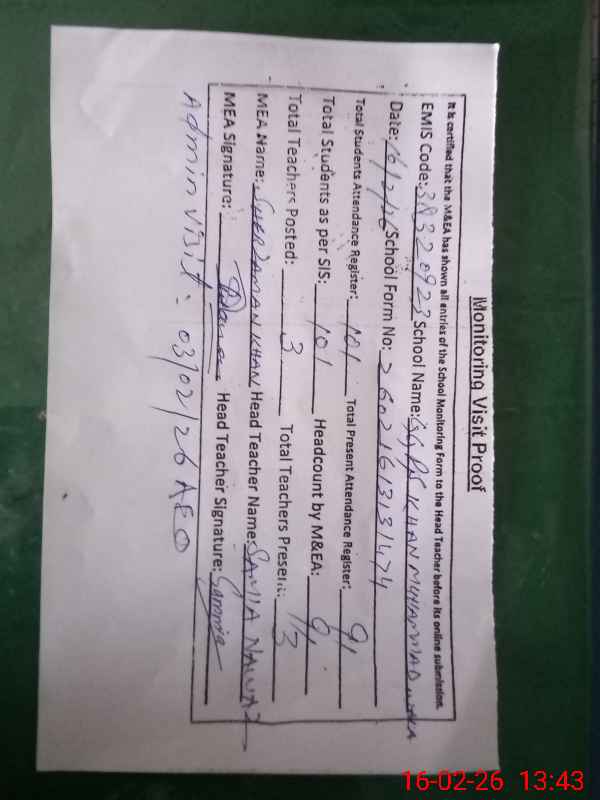 Monitoring Visit Proof
It is certified that the M&EA has shown all entries of the School Monitoring Form to the Head Teacher before its online submission.
EMIS Code: 38320923 School Name: GGPS KHAN MUHAMMAD
Date: 16/2/26 School Form No: 26021613131474
Total Students Attendance Register: 101 Total Present Attendance Register: 91
Total Students as per SIS: 101 Headcount by M&EA: 91
Total Teachers Posted: 3 Total Teachers Present: 3
MEA Name: SHERZAMAN KHAN Head Teacher Name: SAMIA NAWAZ
MEA Signature: Head Teacher Signature: Samia
Admin visit: 03/02/26 AEO
16-02-26 13:43